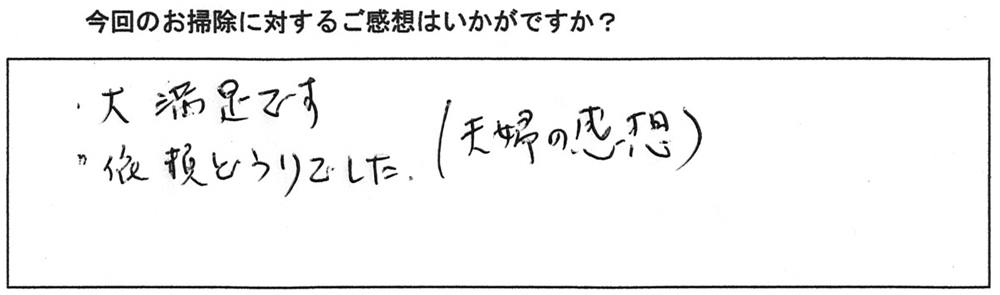 今回のお掃除に対するご感想はいかがですか？
・大満足です
〃依頼どうりでした.（夫婦の感想）